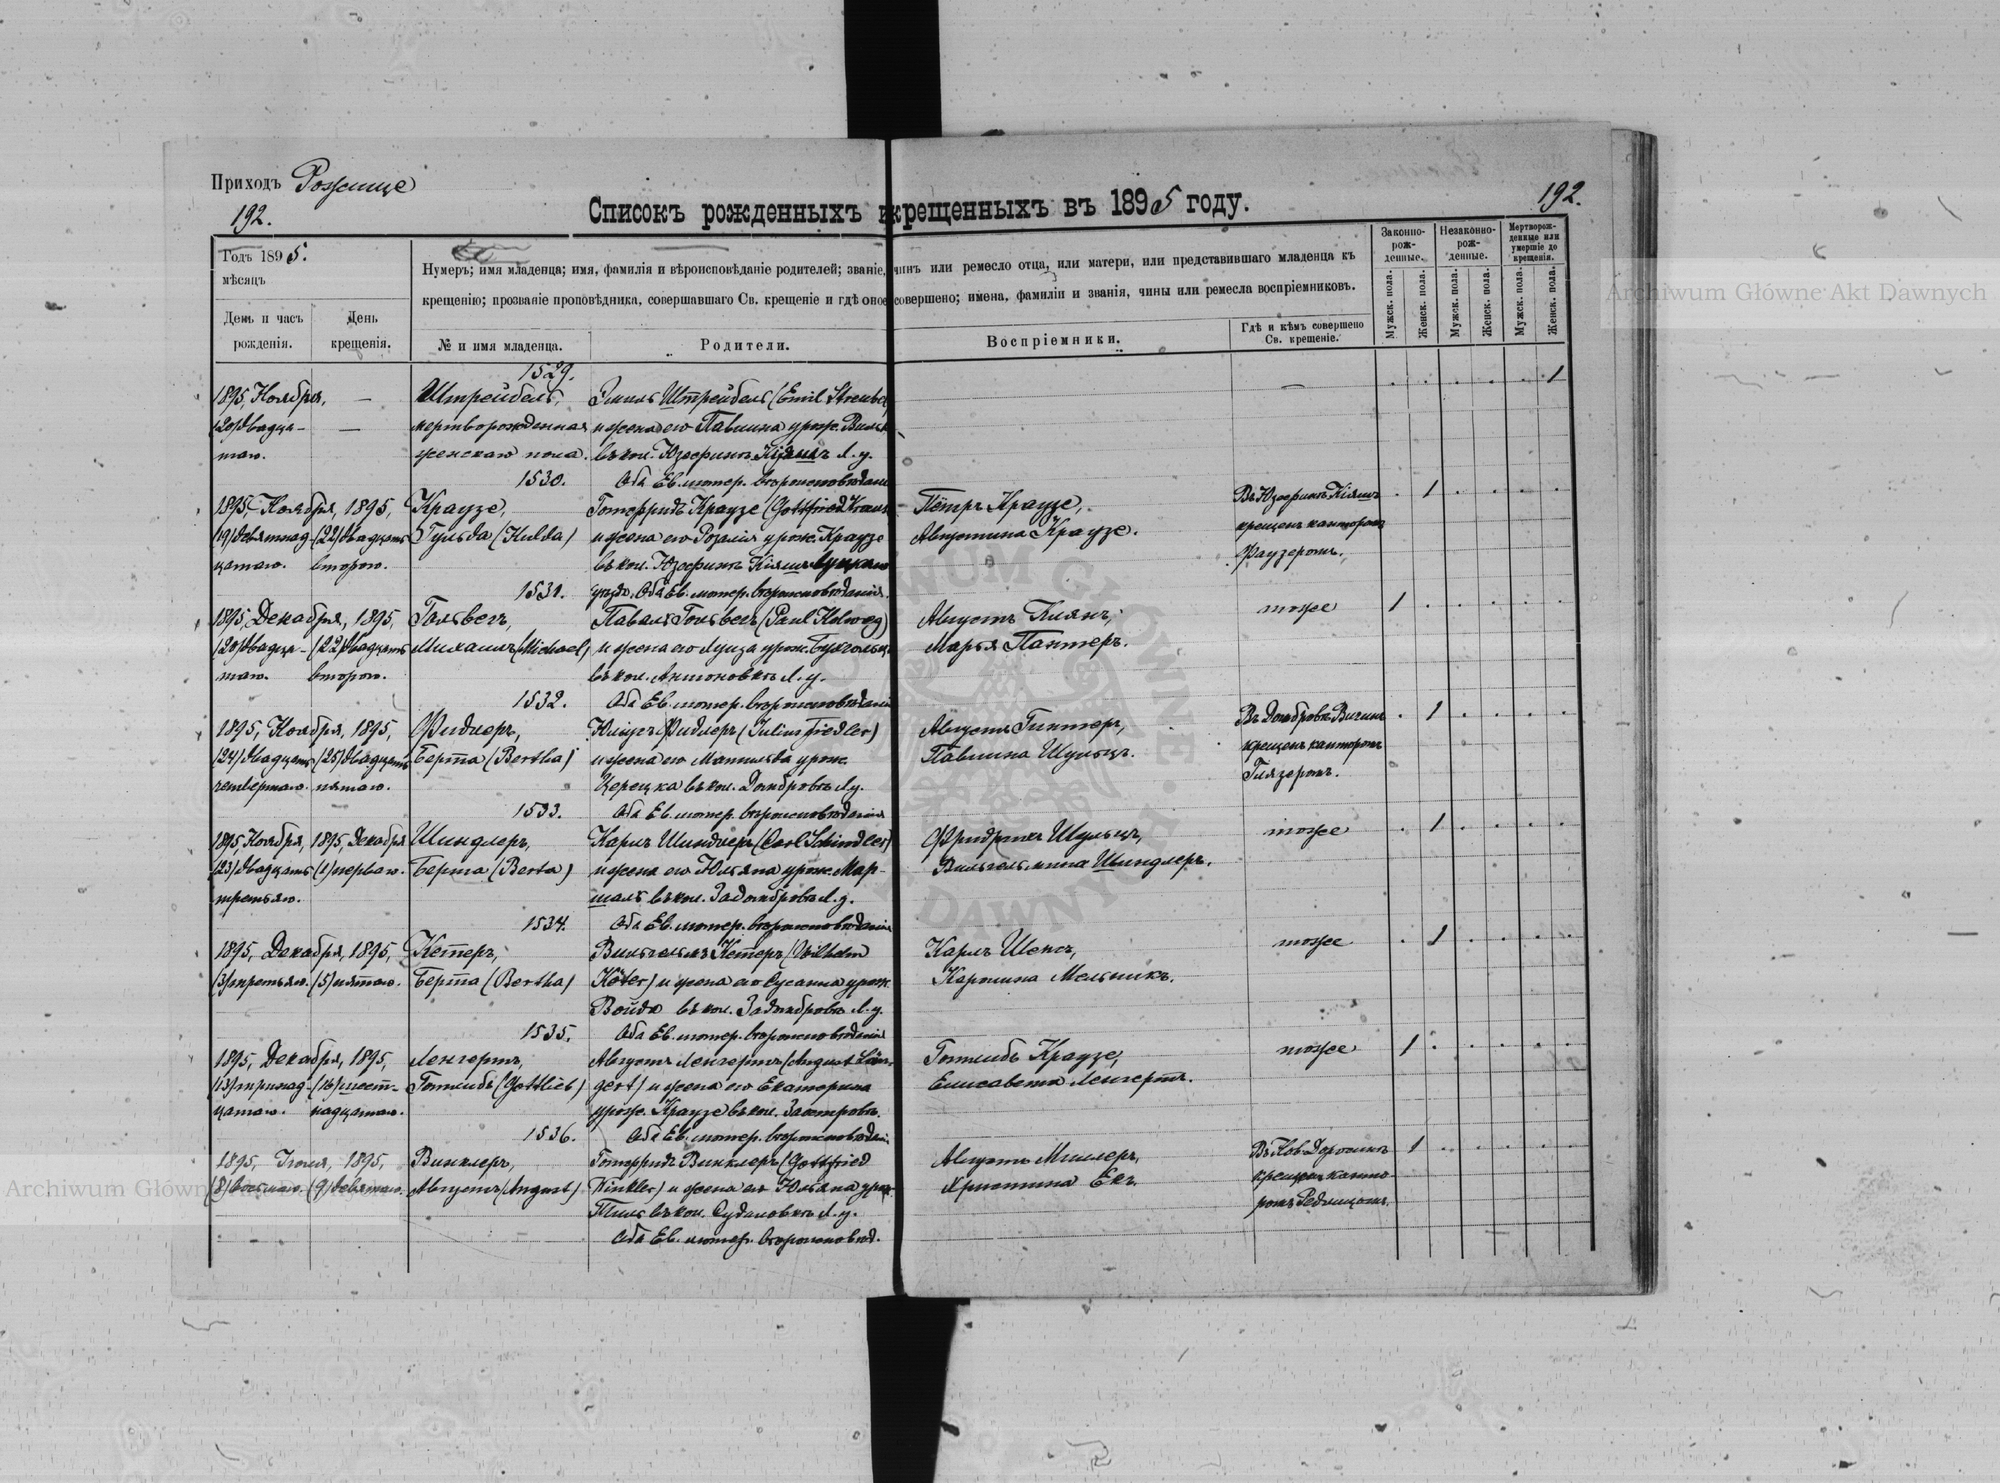 Приходъ Рожище
192.
192.
Списокъ рожденныхъ и крещенныхъ въ 1895 году.
Годъ 1895.
мѣсяцъ
День и часъ рожденія.
День крещенія.
Нумеръ; имя младенца; имя, фамилія и вѣроисповѣданіе родителей; званіе, чинъ или ремесло отца, или матери, или представившаго младенца къ
крещенію; прозваніе проповѣдника, совершавшаго Св. крещеніе и гдѣ оное совершено; имена, фамиліи и званія, чины или ремесла воспріемниковъ.
№ и имя младенца.
Родители.
Воспріемники.
Гдѣ и кѣмъ совершено Св. крещеніе.
Законно-рожденные.
Незаконно-рожденные.
Мертворожденные или умершіе до крещенія.
Мужск. пола.
Женск. пола.
Мужск. пола.
Женск. пола.
Мужск. пола.
Женск. пола.
1529.
1895, Ноября, — Штрейбель, Эмиль Штрейбель (Emil Streubel — 1
(20) двадца- — мертворожденная и жена его Павлина урож.
таго. женскаго пола. въ кол. Юзефинъ Кіяшъ Л. у.
1530. Оба Ев. лютер. вѣроисповѣданія
1895, Ноября, 1895, Краузе, Готфридъ Краузе (Gottfried Kraus Петръ Краузе, Въ Юзефинъ Кіяшъ 1
(19) девятнад- (22) двадцать Гульда (Hulda) и жена его Розалія урож. Краузе Августина Краузе. крещенъ канторомъ
цатаго. второго. въ кол. Юзефинъ Кіяшъ Луцкаго Фаузеромъ.
1531. уѣзда. Оба Ев. лютер. вѣроисповѣданія.
1895, Декабря, 1895, Гольвегъ, Павелъ Гольвегъ (Paul Holweg) Августъ Клянъ, тоже 1
(20) двадца- (22) двадцать Михаилъ (Michael) и жена его Луиза урож. Бухгольцъ Марья Пантеръ.
таго. второго. въ кол. Антоновкѣ Л. у.
1532. Оба Ев. лютер. вѣроисповѣданія
1895, Ноября, 1895, Фидлеръ, Юліусъ Фидлеръ (Julius Fiedler) Августъ Гинтеръ, Въ Домбровѣ 1
(24) двадцать (25) двадцать Берта (Bertha) и жена его Матильда урож. Павлина Шульцъ. крещенъ канторомъ
четвертаго. пятаго. Церецка въ кол. Домбровѣ Л. у. Глязеромъ.
1533. Оба Ев. лютер. вѣроисповѣданія
1895, Ноября, 1895, Декабря Шиндлеръ, Карлъ Шиндлеръ (Carl Schindler) Фридрихъ Шульцъ, тоже 1
(23) двадцать (1) перваго. Берта (Berta) и жена его Юльяна урож. Мар- Вильгельмина Шиндлеръ.
третьяго. шаль въ кол. Задомбровѣ Л. у.
1534. Оба Ев. лютер. вѣроисповѣданія
1895, Декабря, 1895, Кетеръ, Вильгельмъ Кетеръ (Wilhelm Карлъ Шенсъ, тоже 1
(3) третьяго. (5) пятаго. Берта (Bertha) Köter) и жена его Сусанна урож. Каролина Мельникъ.
Войда въ кол. Задомбровѣ Л. у.
1535. Оба Ев. лютер. вѣроисповѣданія
1895, Декабря, 1895, Ленгертъ, Августъ Ленгертъ (August Län- Готлибъ Краузе, тоже 1
(13) тринад- (16) шест- Готлибъ (Gottlieb) gert) и жена его Екатерина Елисавета Ленгертъ.
цатаго. надцатаго. урож. Краузе въ кол. Заостровъ.
1536. Оба Ев. лютер. вѣроисповѣданія
1895, Іюля, 1895, Винклеръ, Готфридъ Винклеръ (Gottfried Августъ Миллеръ, Въ Нов. Доросинѣ 1
(8) восьмаго. (9) девятаго. Августъ (August) Winkler) и жена его Юльяна урож. Христина Екъ. крещенъ канто-
Тиль въ кол. Судаловкѣ Л. у. ромъ Редлицомъ.
Оба Ев. лютер. вѣроисповѣд.
Archiwum Główne Akt Dawnych
Archiwum Główne